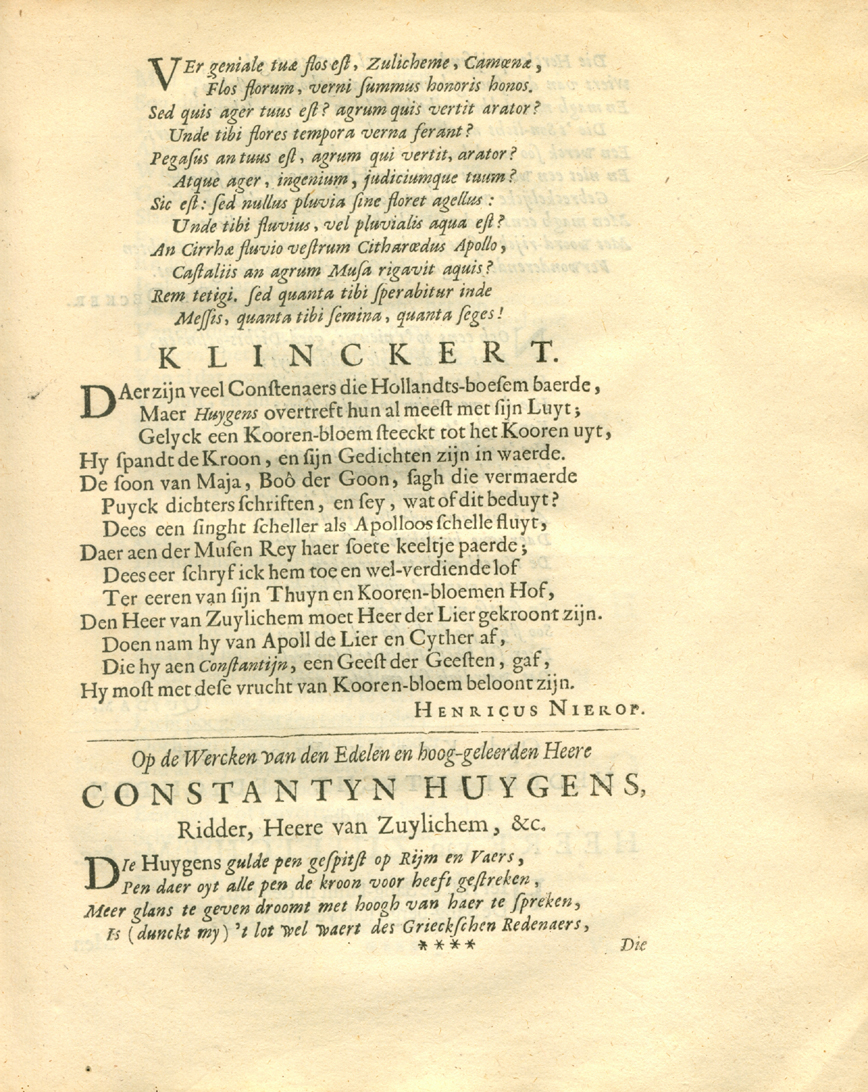 VEr geniale tuæ flos eſt, Zulicheme, Camœnæ,
Flos florum, verni ſummus honoris honos.
Sed quis ager tuus eſt? agrum quis vertit arator?
Unde tibi flores tempora verna ferant?
Pegaſus an tuus eſt, agrum qui vertit, arator?
Atque ager, ingenium, judiciumque tuum?
Sic eſt: ſed nullus pluvia ſine floret agellus:
Unde tibi fluvius, vel pluvialis aqua eſt?
An Cirrhæ fluvio veſtrum Citharœdus Apollo,
Caſtaliis an agrum Muſa rigavit aquis?
Rem tetigi. ſed quanta tibi ſperabitur inde
Meſſis, quanta tibi ſemina, quanta ſeges!
KLINCKERT.
DAer zijn veel Conſtenaers die Hollandts-boeſem baerde,
Maer Huygens overtreft hun al meeſt met ſijn Luyt;
Gelyck een Kooren-bloem ſteeckt tot het Kooren uyt,
Hy ſpandt de Kroon, en ſijn Gedichten zijn in waerde.
De ſoon van Maja, Boô der Goon, ſagh die vermaerde
Puyck dichters ſchriften, en ſey, wat of dit beduyt?
Dees een ſinght ſcheller als Apolloos ſchelle fluyt,
Daer aen der Muſen Rey haer ſoete keeltje paerde;
Dees eer ſchryf ick hem toe en wel-verdiende lof
Ter eeren van ſijn Thuyn en Kooren-bloemen Hof,
Den Heer van Zuylichem moet Heer der Lier gekroont zijn.
Doen nam hy van Apoll de Lier en Cyther af,
Die hy aen Conſtantijn, een Geeſt der Geeſten, gaf,
Hy moſt met deſe vrucht van Kooren-bloem beloont zijn.
HENRICUS NIEROP.
Op de Wercken van den Edelen en hoog-geleerden Heere
CONSTANTYN HUYGENS,
Ridder, Heere van Zuylichem, &c.
DIe Huygens gulde pen geſpitſt op Rijm en Vaers,
Pen daer oyt alle pen de kroon voor heeft geſtreken,
Meer glans te geven droomt met hoogh van haer te ſpreken,
Is (dunckt my) 't lot wel waert des Grieckſchen Redenaers,
**** Die